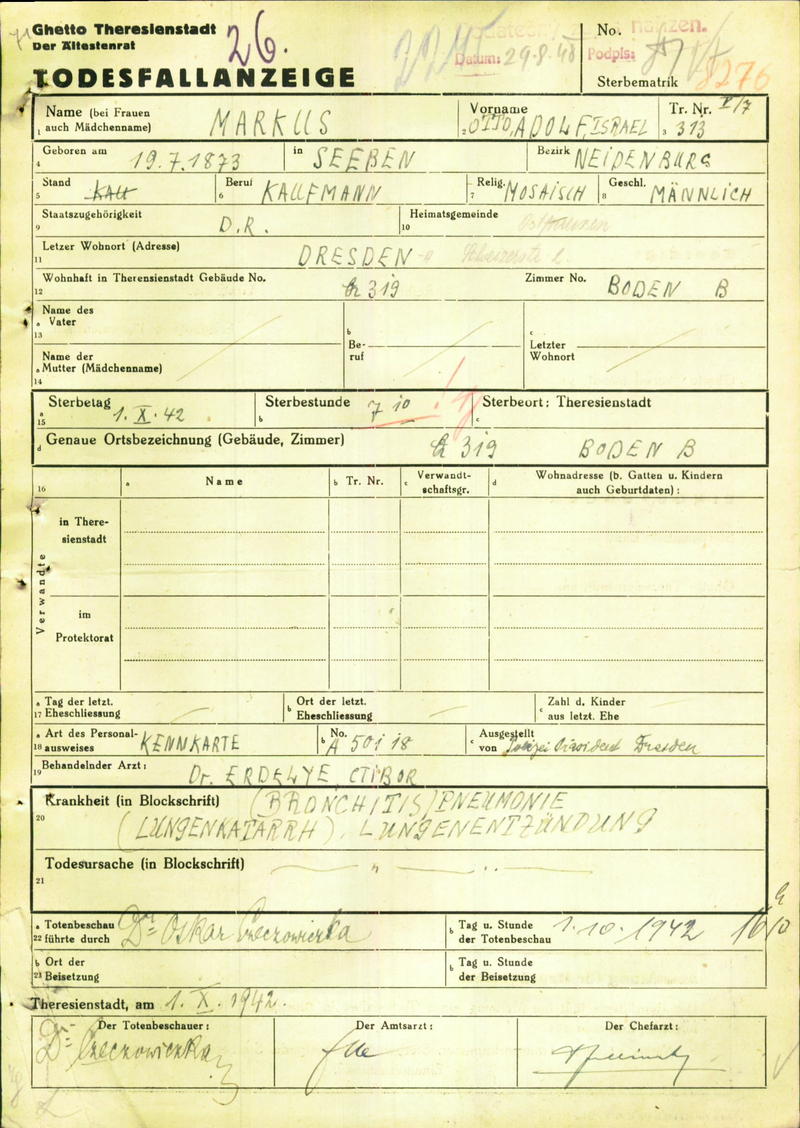 Ghetto Theresienstadt
Der Ältestenrat
26.
TODESFALLANZEIGE
Datum: 29.8.48
No.
Podpis:
Sterbematrik
8276
Name (bei Frauen
1 auch Mädchenname) MARKUS
Vorname
2 OTTO, ADOLF, ISRAEL
Tr. Nr. V/7
3 313
Geboren am
4 19.7.1873
in SEEBEN
Bezirk NEIDENBURG
Stand
5
Beruf
6 KAUFMANN
Relig.
7 MOSAISCH
Geschl.
8 MÄNNLICH
Staatszugehörigkeit
9 D.R.
Heimatsgemeinde
10
Letzer Wohnort (Adresse)
11 DRESDEN
Wohnhaft in Therensienstadt Gebäude No.
12 319
Zimmer No. BODEN B
Name des
a Vater
13
Name der
a Mutter (Mädchenname)
14
b
Be-
ruf
c
Letzter
Wohnort
Sterbetag
a
15 1. X. 42
Sterbestunde 7 10
b
Sterbeort: Theresienstadt
c
d Genaue Ortsbezeichnung (Gebäude, Zimmer) 319 BODEN B
16
a Name
b Tr. Nr.
c Verwandt-
schaftsgr.
d Wohnadresse (b. Gatten u. Kindern
auch Geburtdaten) :
Verwandte
in There-
sienstadt
im
Protektorat
a Tag der letzt.
17 Eheschliessung
b Ort der letzt.
Eheschliessung
c Zahl d. Kinder
aus letzt. Ehe
a Art des Personal-
18 ausweises KENNKARTE
b No.
A 501 18
c Ausgestellt
von Polizei Präsident Dresden
19 Behandelnder Arzt: Dr. ERDELYE, CTIBOR
Krankheit (in Blockschrift) (BRONCHITIS) PNEUMONIE
20 (LUNGENKATARRH), LUNGENENTZÜNDUNG
Todesursache (in Blockschrift)
21
a Totenbeschau
22 führte durch Dr. Oskar Czeczowiczka
b Tag u. Stunde
der Totenbeschau 1.10.1942 16 h 10
b Ort der
23 Beisetzung
b Tag u. Stunde
der Beisetzung
Theresienstadt, am 1. X. 1942.
Der Totenbeschauer:
Dr. Czeczowiczka
Der Amtsarzt:
Der Chefarzt: